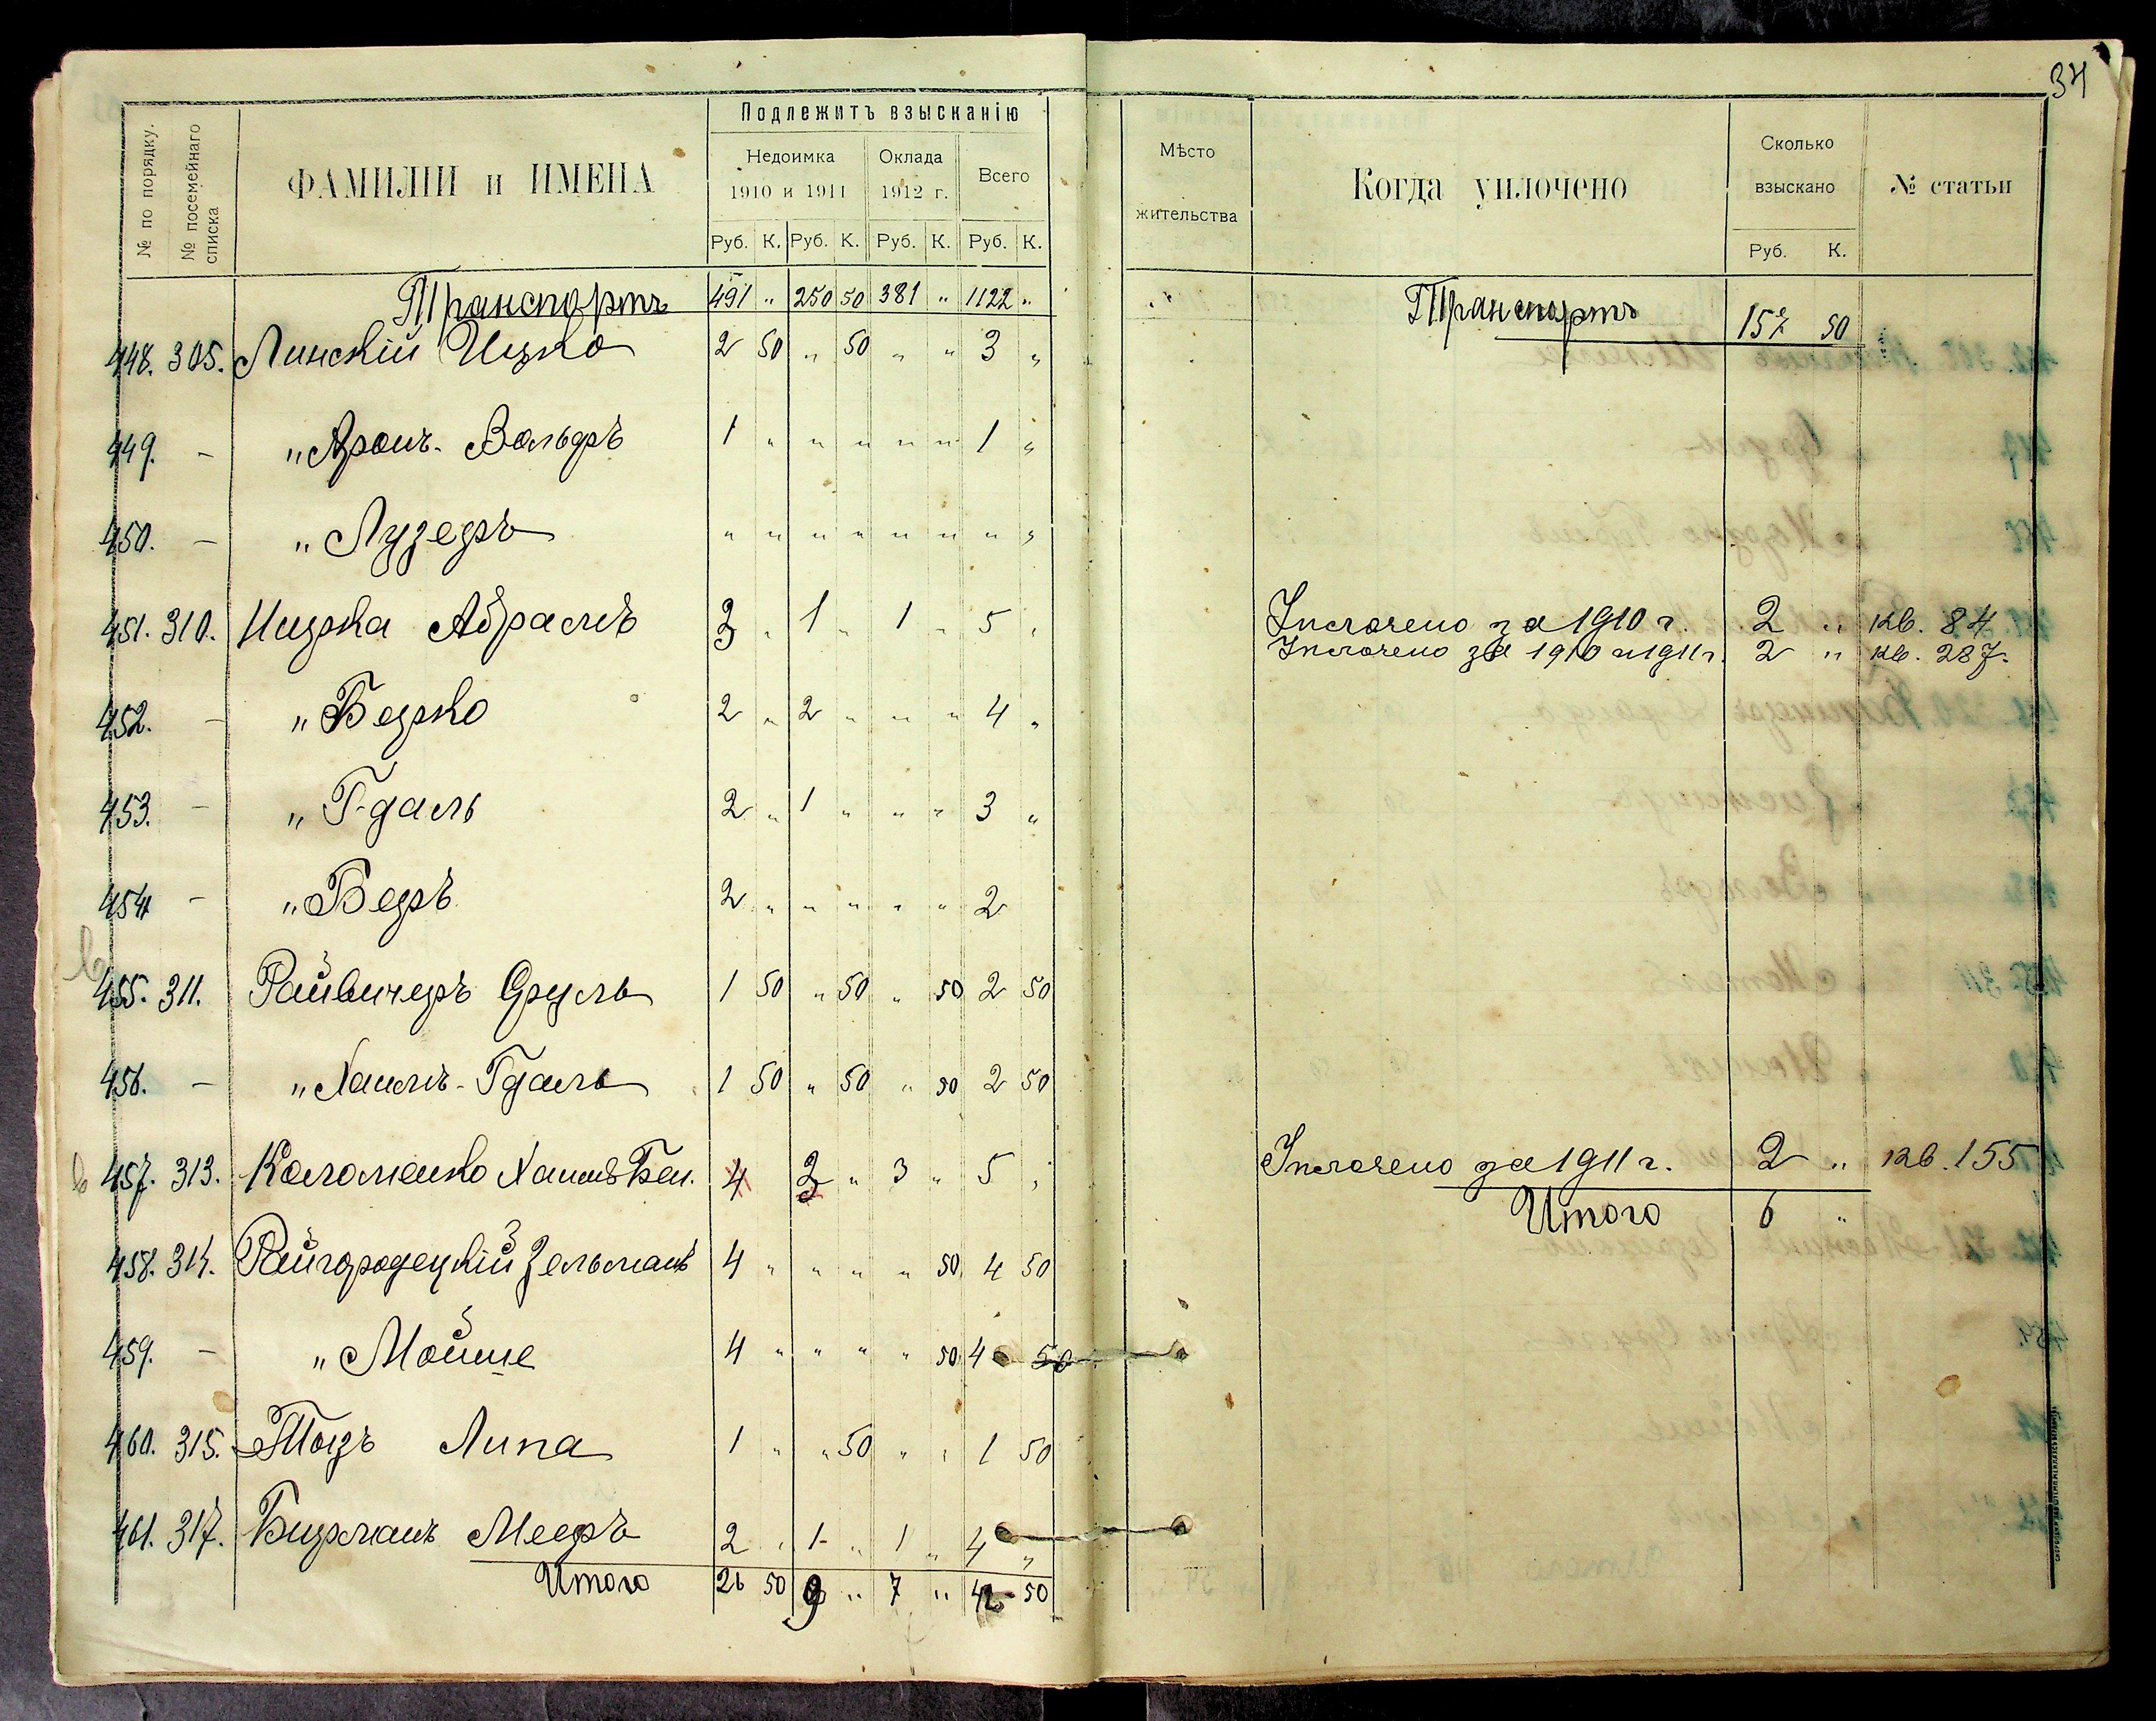 34
№ по порядку.
№ посемейнаго списка
ФАМИЛІИ и ИМЕНА
Подлежитъ взысканію
Недоимка 1910 и 1911
Оклада 1912 г.
Всего
Руб. К. Руб. К. Руб. К. Руб. К.
Мѣсто жительства
Когда уплочено
Сколько взыскано
Руб. К.
№ статьи
Транспортъ 491 " 250 50 381 " 1122 "
Транспортъ 157 50
448. 305. Линскій Ицко 2 50 " 50 " " 3 "
449. - " Аронъ-Вольфъ 1 " " " " " 1 "
450. - " Лузеръ " " " " " " " "
451. 310. Ницка Абрамъ " 1 " 1 " 5 "
Уплочено за 1910 г. 2 " кв. 84
Уплочено за 1910 и 1911 г. 2 " кв. 287.
452. - " Берко 2 " 2 " " " 4 "
453. - " Гдаль 2 " 1 " " " 3 "
454 - " Беръ 2 " " " " " 2
455. 311. Райвичеръ Сруль 1 50 " 50 " 50 2 50
456. - " Хаимъ-Гдаль 1 50 " 50 " 50 2 50
457. 313. Коломенко Хаимъ Бен. 4 2 " 3 " 5 "
Уплочено за 1911 г. 2 " кв. 155
Итого 6 "
458. 314. Райгородецкій Зельманъ 4 " " " " 50 4 50
459. - " Мойше 4 " " " " 50 4 50
460. 315. Тоцъ Липа 1 " " 50 " " 1 50
461. 317. Бирманъ Мееръ 2 " 1 " 1 " 4 "
Итого 26 50 9 " 7 " 42 50